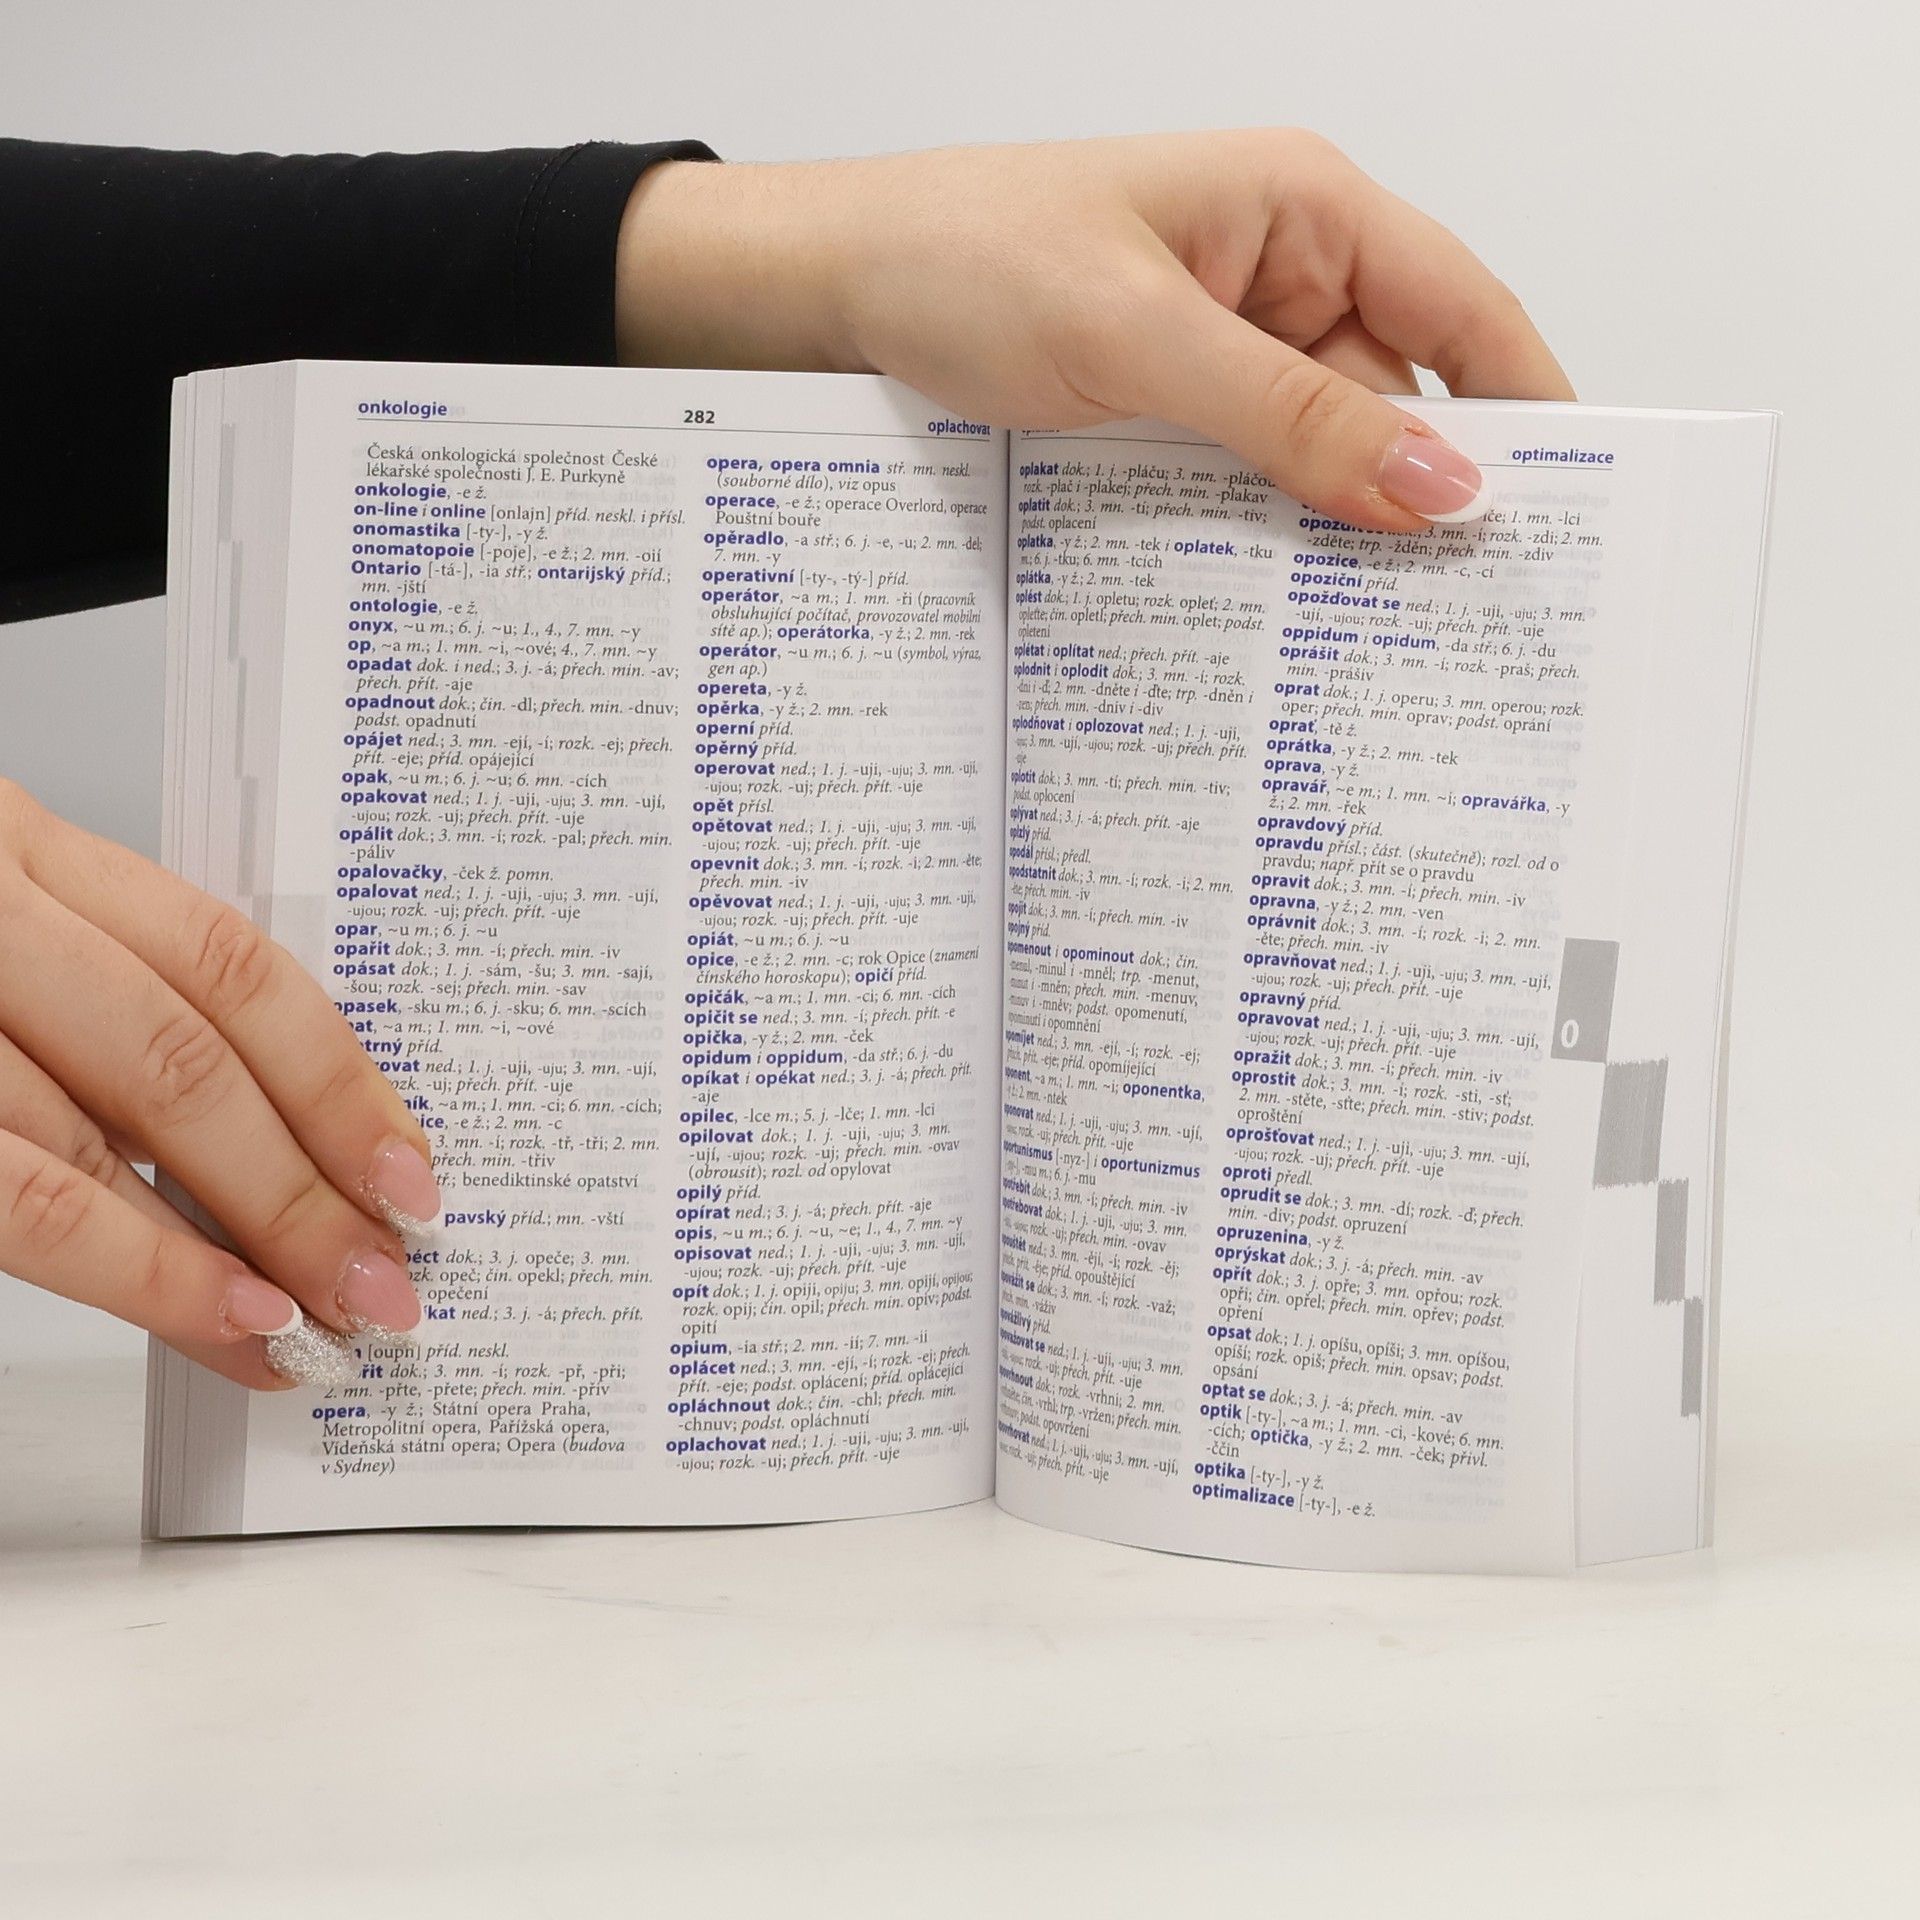 onkologie
282
oplachovat
Česká onkologická společnost České
lékařské společnosti J. E. Purkyně
onkologie, -e ž.
on-line i online [onlajn] příd. neskl. i přísl.
onomastika [-ty-], -y ž.
onomatopoie [-poje], -e ž.; 2. mn. -oií
Ontario [-tá-], -ia stř.; ontarijský příd.;
mn. -jští
ontologie, -e ž.
onyx, ~u m.; 6. j. ~u; 1., 4., 7. mn. ~y
op, ~a m.; 1. mn. ~i, ~ové; 4., 7. mn. ~y
opadat dok. i ned.; 3. j. -á; přech. min. -av;
přech. přít. -aje
opadnout dok.; čin. -dl; přech. min. -dnuv;
podst. opadnutí
opájet ned.; 3. mn. -ejí, -í; rozk. -ej; přech.
přít. -eje; příd. opájející
opak, ~u m.; 6. j. ~u; 6. mn. -cích
opakovat ned.; 1. j. -uji, -uju; 3. mn. -ují,
-ujou; rozk. -uj; přech. přít. -uje
opálit dok.; 3. mn. -í; rozk. -pal; přech. min.
-páliv
opalovačky, -ček ž. pomn.
opalovat ned.; 1. j. -uji, -uju; 3. mn. -ují,
-ujou; rozk. -uj; přech. přít. -uje
opar, ~u m.; 6. j. ~u
opařit dok.; 3. mn. -í; přech. min. -iv
opásat dok.; 1. j. -sám, -šu; 3. mn. -sají,
-šou; rozk. -sej; přech. min. -sav
opasek, -sku m.; 6. j. -sku; 6. mn. -scích
~a m.; 1. mn. ~i, ~ové
příd.
ned.; 1. j. -uji, -uju; 3. mn. -ují,
-uj; přech. přít. -uje
~a m.; 1. mn. -ci; 6. mn. -cích;
-e ž.; 2. mn. -c
3. mn. -í; rozk. -tř, -tři; 2. mn.
přech. min. -třiv
benediktinské opatství
příd.; mn. -vští
dok.; 3. j. opeče; 3. mn.
opeč; čin. opekl; přech. min.
opečení
ned.; 3. j. -á; přech. přít.
[oupn] příd. neskl.
dok.; 3. mn. -í; rozk. -př, -při;
2. mn. -přte, -přete; přech. min. -přiv
opera, -y ž.; Státní opera Praha,
Metropolitní opera, Pařížská opera,
Vídeňská státní opera; Opera (budova
v Sydney)
opera, opera omnia stř. mn. neskl.
(souborné dílo), viz opus
operace, -e ž.; operace Overlord, operace
Pouštní bouře
opěradlo, -a stř.; 6. j. -e, -u; 2. mn. -del;
7. mn. -y
operativní [-ty-, -tý-] příd.
operátor, ~a m.; 1. mn. -ři (pracovník
obsluhující počítač, provozovatel mobilní
sítě ap.); operátorka, -y ž.; 2. mn. -rek
operátor, ~u m.; 6. j. ~u (symbol, výraz,
gen ap.)
opereta, -y ž.
opěrka, -y ž.; 2. mn. -rek
operní příd.
opěrný příd.
operovat ned.; 1. j. -uji, -uju; 3. mn. -ují,
-ujou; rozk. -uj; přech. přít. -uje
opět přísl.
opětovat ned.; 1. j. -uji, -uju; 3. mn. -ují,
-ujou; rozk. -uj; přech. přít. -uje
opevnit dok.; 3. mn. -í; rozk. -i; 2. mn. -ěte;
přech. min. -iv
opěvovat ned.; 1. j. -uji, -uju; 3. mn. -ují,
-ujou; rozk. -uj; přech. přít. -uje
opiát, ~u m.; 6. j. ~u
opice, -e ž.; 2. mn. -c; rok Opice (znamení
čínského horoskopu); opičí příd.
opičák, ~a m.; 1. mn. -ci; 6. mn. -cích
opičit se ned.; 3. mn. -í; přech. přít. -e
opička, -y ž.; 2. mn. -ček
opidum i oppidum, -da stř.; 6. j. -du
opíkat i opékat ned.; 3. j. -á; přech. přít.
-aje
opilec, -lce m.; 5. j. -lče; 1. mn. -lci
opilovat dok.; 1. j. -uji, -uju; 3. mn.
-ují, -ujou; rozk. -uj; přech. min. -ovav
(obrousit); rozl. od opylovat
opilý příd.
opírat ned.; 3. j. -á; přech. přít. -aje
opis, ~u m.; 6. j. ~u, ~e; 1., 4., 7. mn. ~y
opisovat ned.; 1. j. -uji, -uju; 3. mn. -ují,
-ujou; rozk. -uj; přech. přít. -uje
opít dok.; 1. j. opiji, opiju; 3. mn. opijí, opijou;
rozk. opij; čin. opil; přech. min. opiv; podst.
opití
opium, -ia stř.; 2. mn. -ií; 7. mn. -ii
oplácet ned.; 3. mn. -ejí, -í; rozk. -ej; přech.
přít. -eje; podst. oplácení; příd. oplácející
opláchnout dok.; čin. -chl; přech. min.
-chnuv; podst. opláchnutí
oplachovat ned.; 1. j. -uji, -uju; 3. mn. -ují,
-ujou; rozk. -uj; přech. přít. -uje
optimalizace
oplakat dok.; 1. j. -pláču; 3. mn. -pláčou
rozk. -plač i -plakej; přech. min. -plakav
oplatit dok.; 3. mn. -tí; přech. min. -tiv;
podst. oplacení
oplatka, -y ž.; 2. mn. -tek i oplatek, -tku
m.; 6. j. -tku; 6. mn. -tcích
oplátka, -y ž.; 2. mn. -tek
oplést dok.; 1. j. opletu; rozk. opleť; 2. mn.
opleťte; čin. opletl; přech. min. oplet; podst.
opletení
oplétat i oplítat ned.; přech. přít. -aje
oplodnit i oplodit dok.; 3. mn. -í; rozk.
-dni i -ď; 2. mn. -dněte i -ďte; trp. -dněn i
-zen; přech. min. -dniv i -div
oplodňovat i oplozovat ned.; 1. j. -uji,
-uju; 3. mn. -ují, -ujou; rozk. -uj; přech. přít.
-uje
oplotit dok.; 3. mn. -tí; přech. min. -tiv;
podst. oplocení
oplývat ned.; 3. j. -á; přech. přít. -aje
oplzlý příd.
opodál přísl.; předl.
opodstatnit dok.; 3. mn. -í; rozk. -i; 2. mn.
-ěte; přech. min. -iv
opojit dok.; 3. mn. -í; přech. min. -iv
opojný příd.
opomenout i opominout dok.; čin.
-menul, -minul i -mněl; trp. -menut,
-minut i -mněn; přech. min. -menuv,
-minuv i -mněv; podst. opomenutí,
opominutí i opomnění
opomíjet ned.; 3. mn. -ejí, -í; rozk. -ej;
přech. přít. -eje; příd. opomíjející
oponent, ~a m.; 1. mn. ~i; oponentka,
-y ž.; 2. mn. -ntek
oponovat ned.; 1. j. -uji, -uju; 3. mn. -ují,
-ujou; rozk. -uj; přech. přít. -uje
oportunismus [-nyz-] i oportunizmus
-mu m.; 6. j. -mu
opotřebit dok.; 3. mn. -í; přech. min. -iv
opotřebovat dok.; 1. j. -uji, -uju; 3. mn.
-ují, -ujou; rozk. -uj; přech. min. -ovav
opouštět ned.; 3. mn. -ějí, -í; rozk. -ěj;
přech. přít. -ěje; příd. opouštějící
opovážit se dok.; 3. mn. -í; rozk. -važ;
přech. min. -váživ
opovážlivý příd.
opovažovat se ned.; 1. j. -uji, -uju; 3. mn.
-ují, -ujou; rozk. -uj; přech. přít. -uje
opovrhnout dok.; rozk. -vrhni; 2. mn.
-vrhněte; čin. -vrhl; trp. -vržen; přech. min.
-vrhnuv; podst. opovržení
opovrhovat ned.; 1. j. -uji, -uju; 3. mn. -ují,
-ujou; rozk. -uj; přech. přít. -uje
1. mn. -lci
3. mn. -í; rozk. -zdi; 2. mn.
-zděte; trp. -žděn; přech. min. -zdiv
opozice, -e ž.; 2. mn. -c, -cí
opoziční příd.
opožďovat se ned.; 1. j. -uji, -uju; 3. mn.
-ují, -ujou; rozk. -uj; přech. přít. -uje
oppidum i opidum, -da stř.; 6. j. -du
oprášit dok.; 3. mn. -í; rozk. -praš; přech.
min. -prášiv
oprat dok.; 1. j. operu; 3. mn. operou; rozk.
oper; přech. min. oprav; podst. oprání
oprať, -tě ž.
oprátka, -y ž.; 2. mn. -tek
oprava, -y ž.
opravář, ~e m.; 1. mn. ~i; opravářka, -y
ž.; 2. mn. -řek
opravdový příd.
opravdu přísl.; část. (skutečně); rozl. od o
pravdu; např. přít se o pravdu
opravit dok.; 3. mn. -í; přech. min. -iv
opravna, -y ž.; 2. mn. -ven
oprávnit dok.; 3. mn. -í; rozk. -i; 2. mn.
-ěte; přech. min. -iv
opravňovat ned.; 1. j. -uji, -uju; 3. mn. -ují,
-ujou; rozk. -uj; přech. přít. -uje
opravný příd.
opravovat ned.; 1. j. -uji, -uju; 3. mn. -ují,
-ujou; rozk. -uj; přech. přít. -uje
opražit dok.; 3. mn. -í; přech. min. -iv
oprostit dok.; 3. mn. -í; rozk. -sti, -sť;
2. mn. -stěte, -sťte; přech. min. -stiv; podst.
oproštění
oprošťovat ned.; 1. j. -uji, -uju; 3. mn. -ují,
-ujou; rozk. -uj; přech. přít. -uje
oproti předl.
oprudit se dok.; 3. mn. -dí; rozk. -ď; přech.
min. -div; podst. opruzení
opruzenina, -y ž.
oprýskat dok.; 3. j. -á; přech. min. -av
opřít dok.; 3. j. opře; 3. mn. opřou; rozk.
opři; čin. opřel; přech. min. opřev; podst.
opření
opsat dok.; 1. j. opíšu, opíši; 3. mn. opíšou,
opíší; rozk. opiš; přech. min. opsav; podst.
opsání
optat se dok.; 3. j. -á; přech. min. -av
optik [-ty-], ~a m.; 1. mn. -ci, -kové; 6. mn.
-cích; optička, -y ž.; 2. mn. -ček; přivl.
-ččin
optika [-ty-], -y ž.
optimalizace [-ty-], -e ž.
O